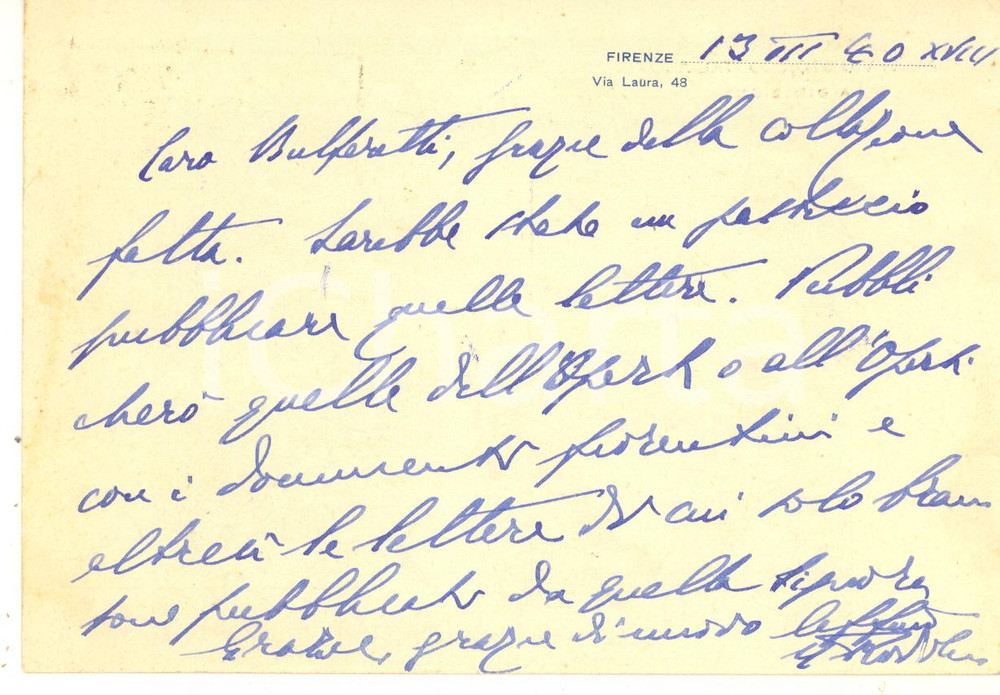 FIRENZE 13 III 40 XVIII
Via Laura, 48
Caro Bulferetti, grazie della collazione
fatta. Sarebbe stato un pasticcio
pubblicare quelle lettere. Pubbli
cherò quelle dell'Oporti o all'Oporti
con i documenti fiorentini e
altresì le lettere di cui solo brani
sono pubblicati da quella signora
Grazie, grazie di nuovo
iCharta